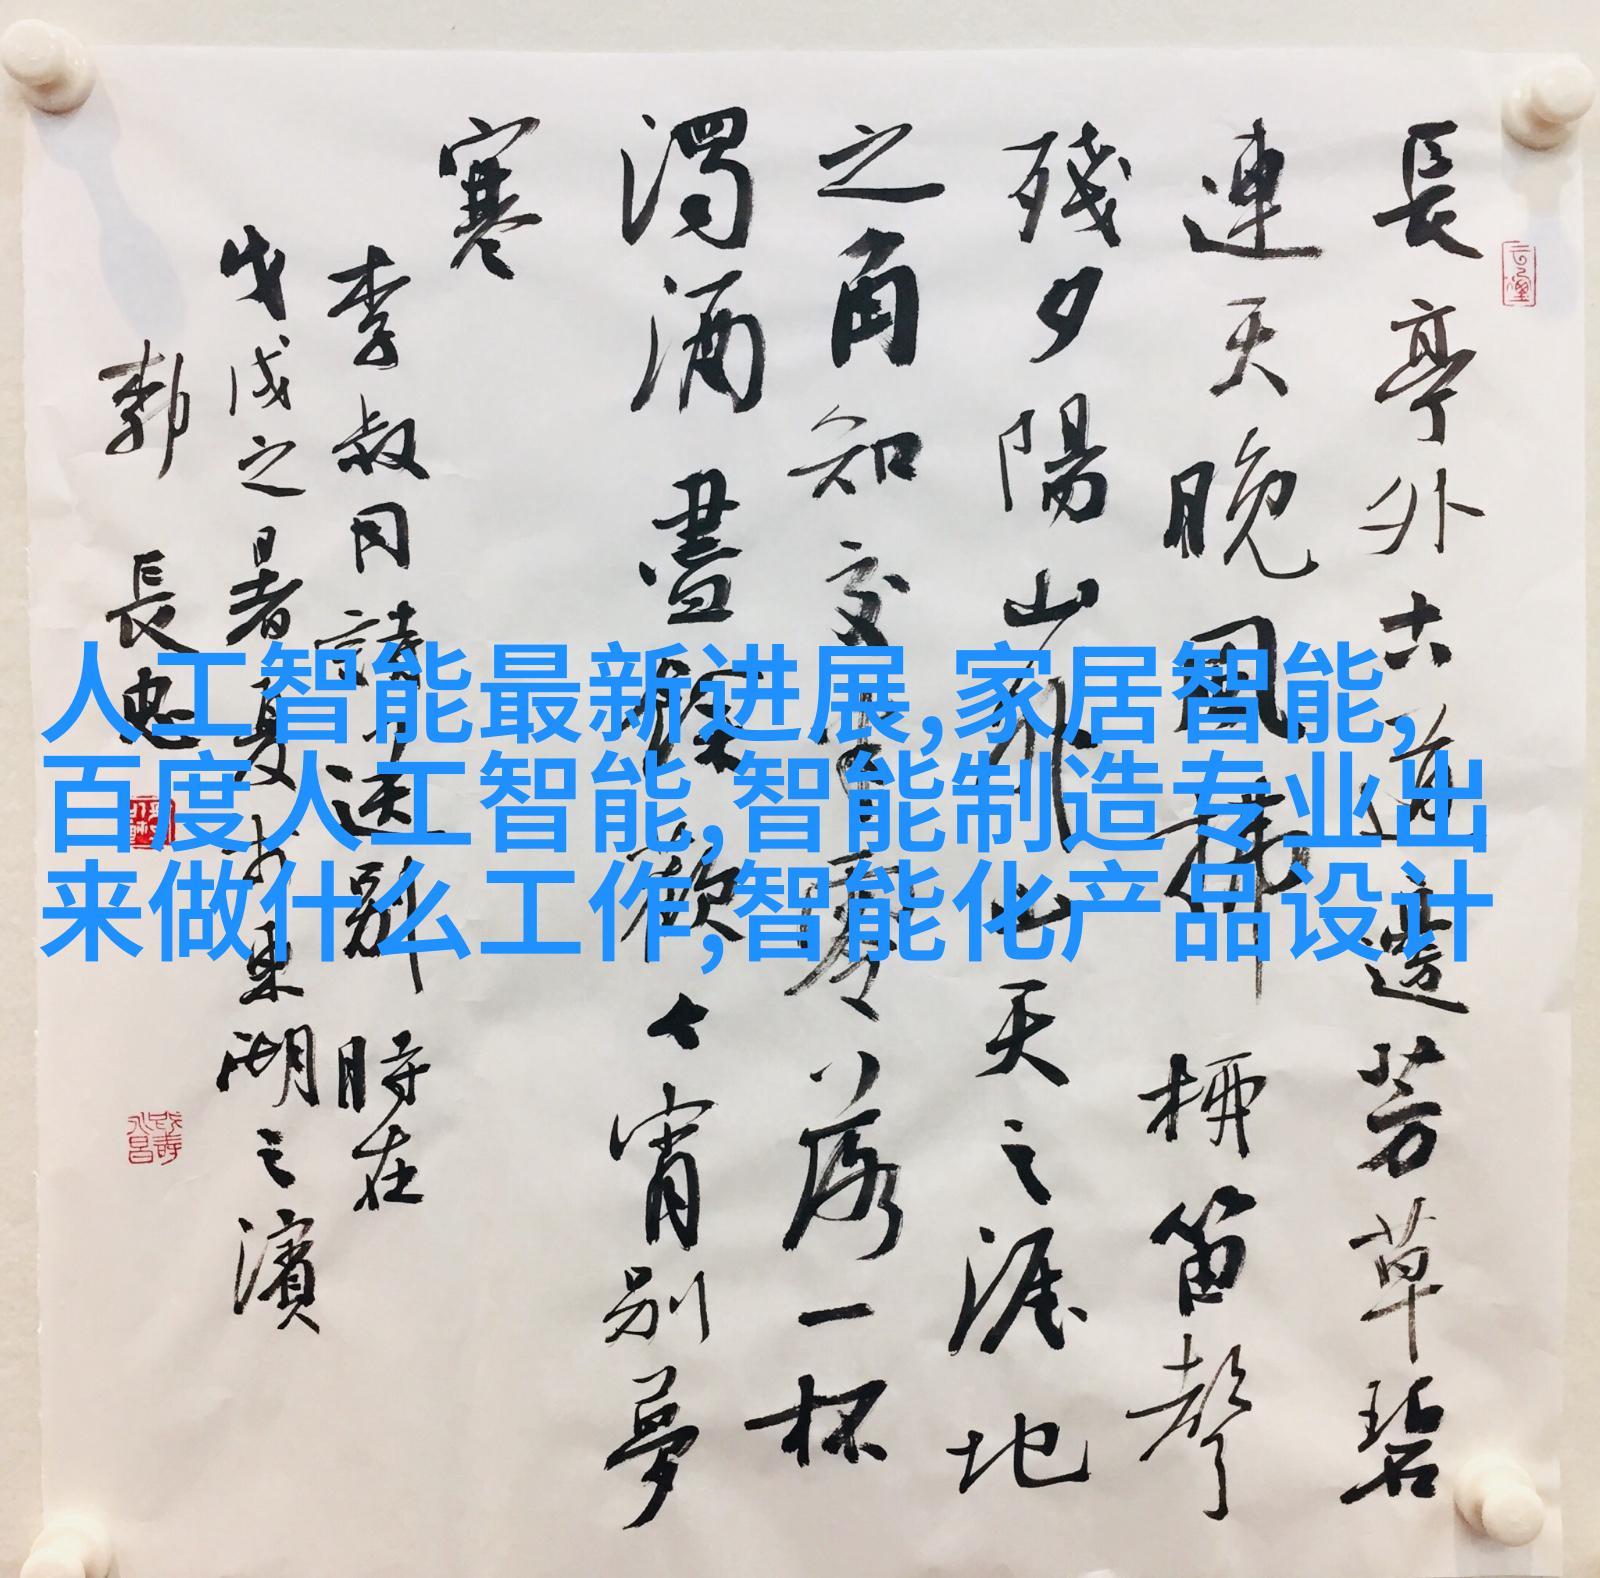 長亭外古道邊芳草碧
連天晚風拂柳笛聲
殘夕陽山外山天之涯地
之角知交半零落一杯
濁酒盡餘歡今宵別夢
寒
李叔同詩送别時在
戊戌之暑夏於東湖之濱
郭長忠
人工智能最新进展,家居智能,
百度人工智能,智能制造专业出
来做什么工作,智能化产品设计